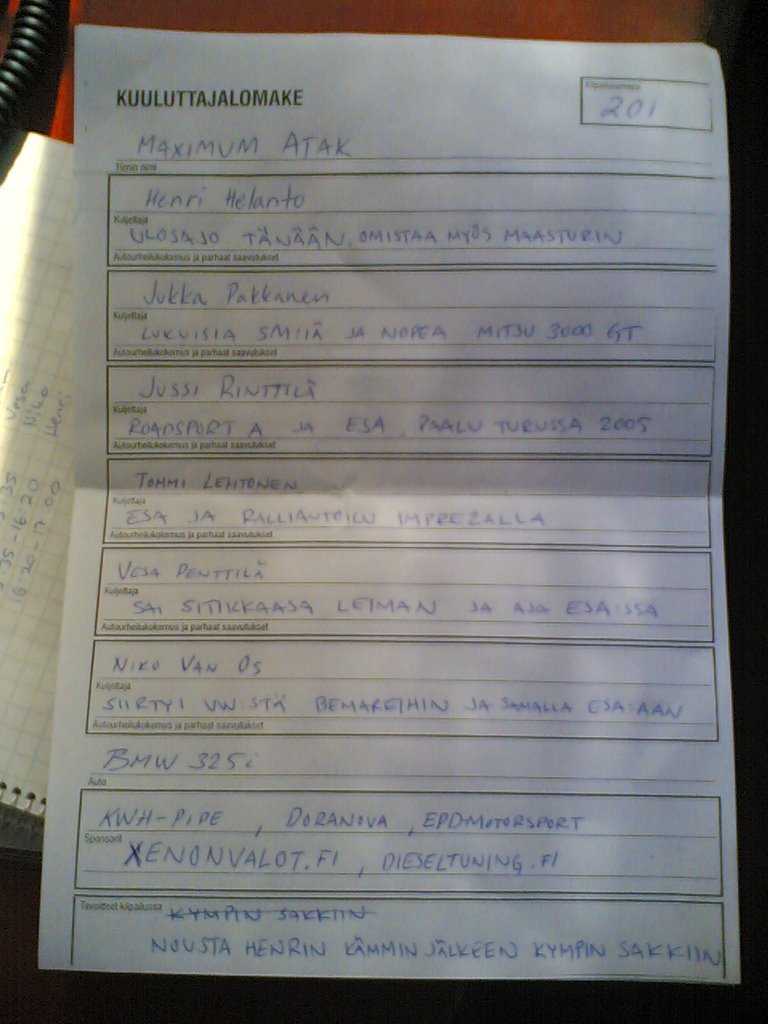 KUULUTTAJALOMAKE
Kilpailunumero
201
MAXIMUM ATAK
Tiimin nimi
Henri Helanto
Kuljettaja
ULOSAJO TÄNÄÄN, OMISTAA MYÖS MAASTURIN
Autourheilukokemus ja parhaat saavutukset
Jukka Pakkanen
Kuljettaja
LUKUISIA SM:IÄ JA NOPEA MITSU 3000 GT
Autourheilukokemus ja parhaat saavutukset
JUSSI RINTTILÄ
Kuljettaja
ROADSPORT A JA ESA, PAALU TURUSSA 2005
Autourheilukokemus ja parhaat saavutukset
TOMMI LEHTONEN
Kuljettaja
ESA JA RALLIAUTOILU IMPREZALLA
Autourheilukokemus ja parhaat saavutukset
VESA PENTTILÄ
Kuljettaja
SAI SITIKKAASA LEIMAN JA AJA ESA:SSA
Autourheilukokemus ja parhaat saavutukset
NIKO VAN OS
Kuljettaja
SIIRTYI VW:STÄ BEMAREIHIN JA SAMALLA ESA:AAN
Autourheilukokemus ja parhaat saavutukset
BMW 325i
Auto
KWH-PIPE, DORANOVA, EPDMOTORSPORT
Sponsorit
XENONVALOT.FI, DIESELTUNING.FI
Tavoitteet kilpailussa KYMPIN SAKKIIN
NOUSTA HENRIN KÄMMIN JÄLKEEN KYMPIN SAKKIIN
Vesa
Niko
Henri
35
35-16:20
16:20-17:00